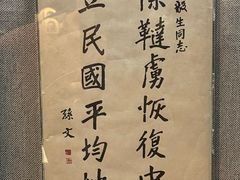 生同志
除韃虜恢復中
立民國平均地
孫文